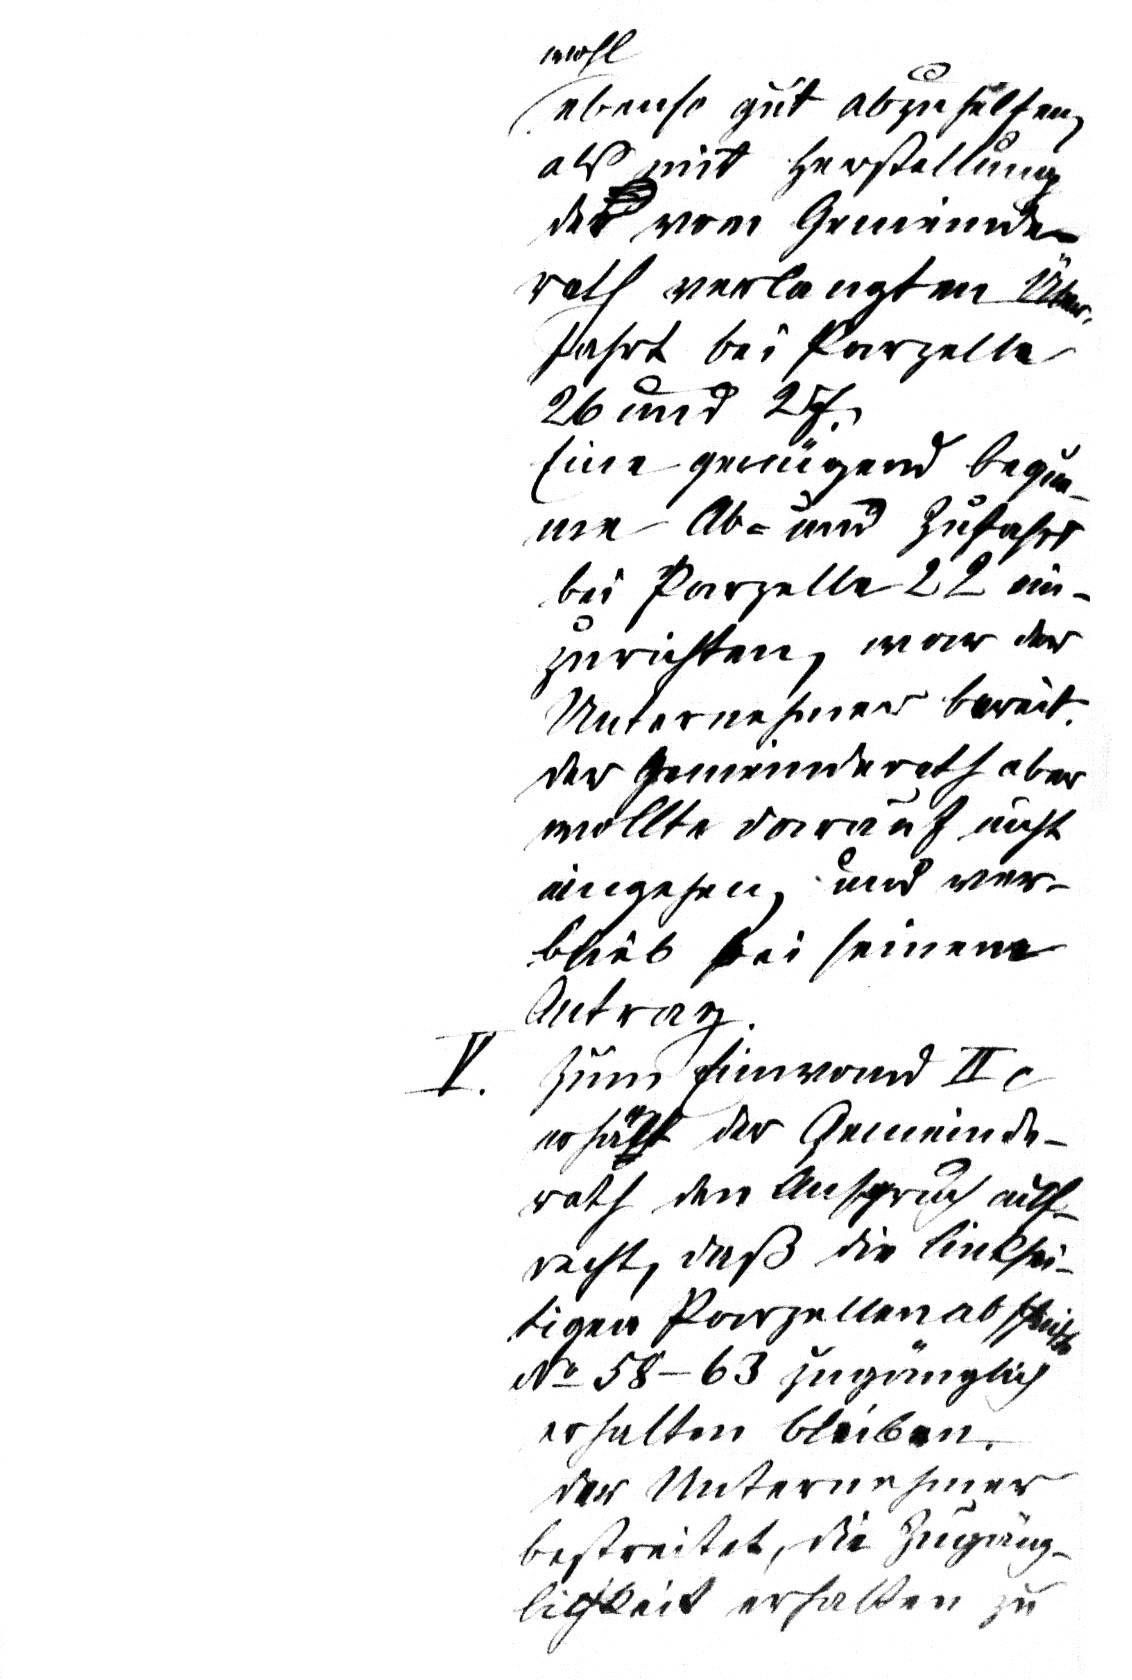 wohl
ebenso gut abzuhelfen,
als mit Herstellung
der vom Gemeinde-
rath verlangten Über-
fahrt bei Parzelle
26 und 27.
Eine genügend beque-
me Ab- und Zufahrt
bei Parzelle 22 ein-
zurichten, war der
Unternehmer bereit.
der Gemeinderath aber
wollte darauf nicht
eingehen, und ver-
blieb bei seinem
Antrag.
V. Zum Einwand II c
erhält der Gemeinde-
rath den Anspruch auf-
recht, daß die linksei-
tigen Parzellenabschnitte
No 58-63 zugänglich
erhalten bleiben.
der Unternehmer
bestreitet, die Zugäng-
lichkeit erhalten zu